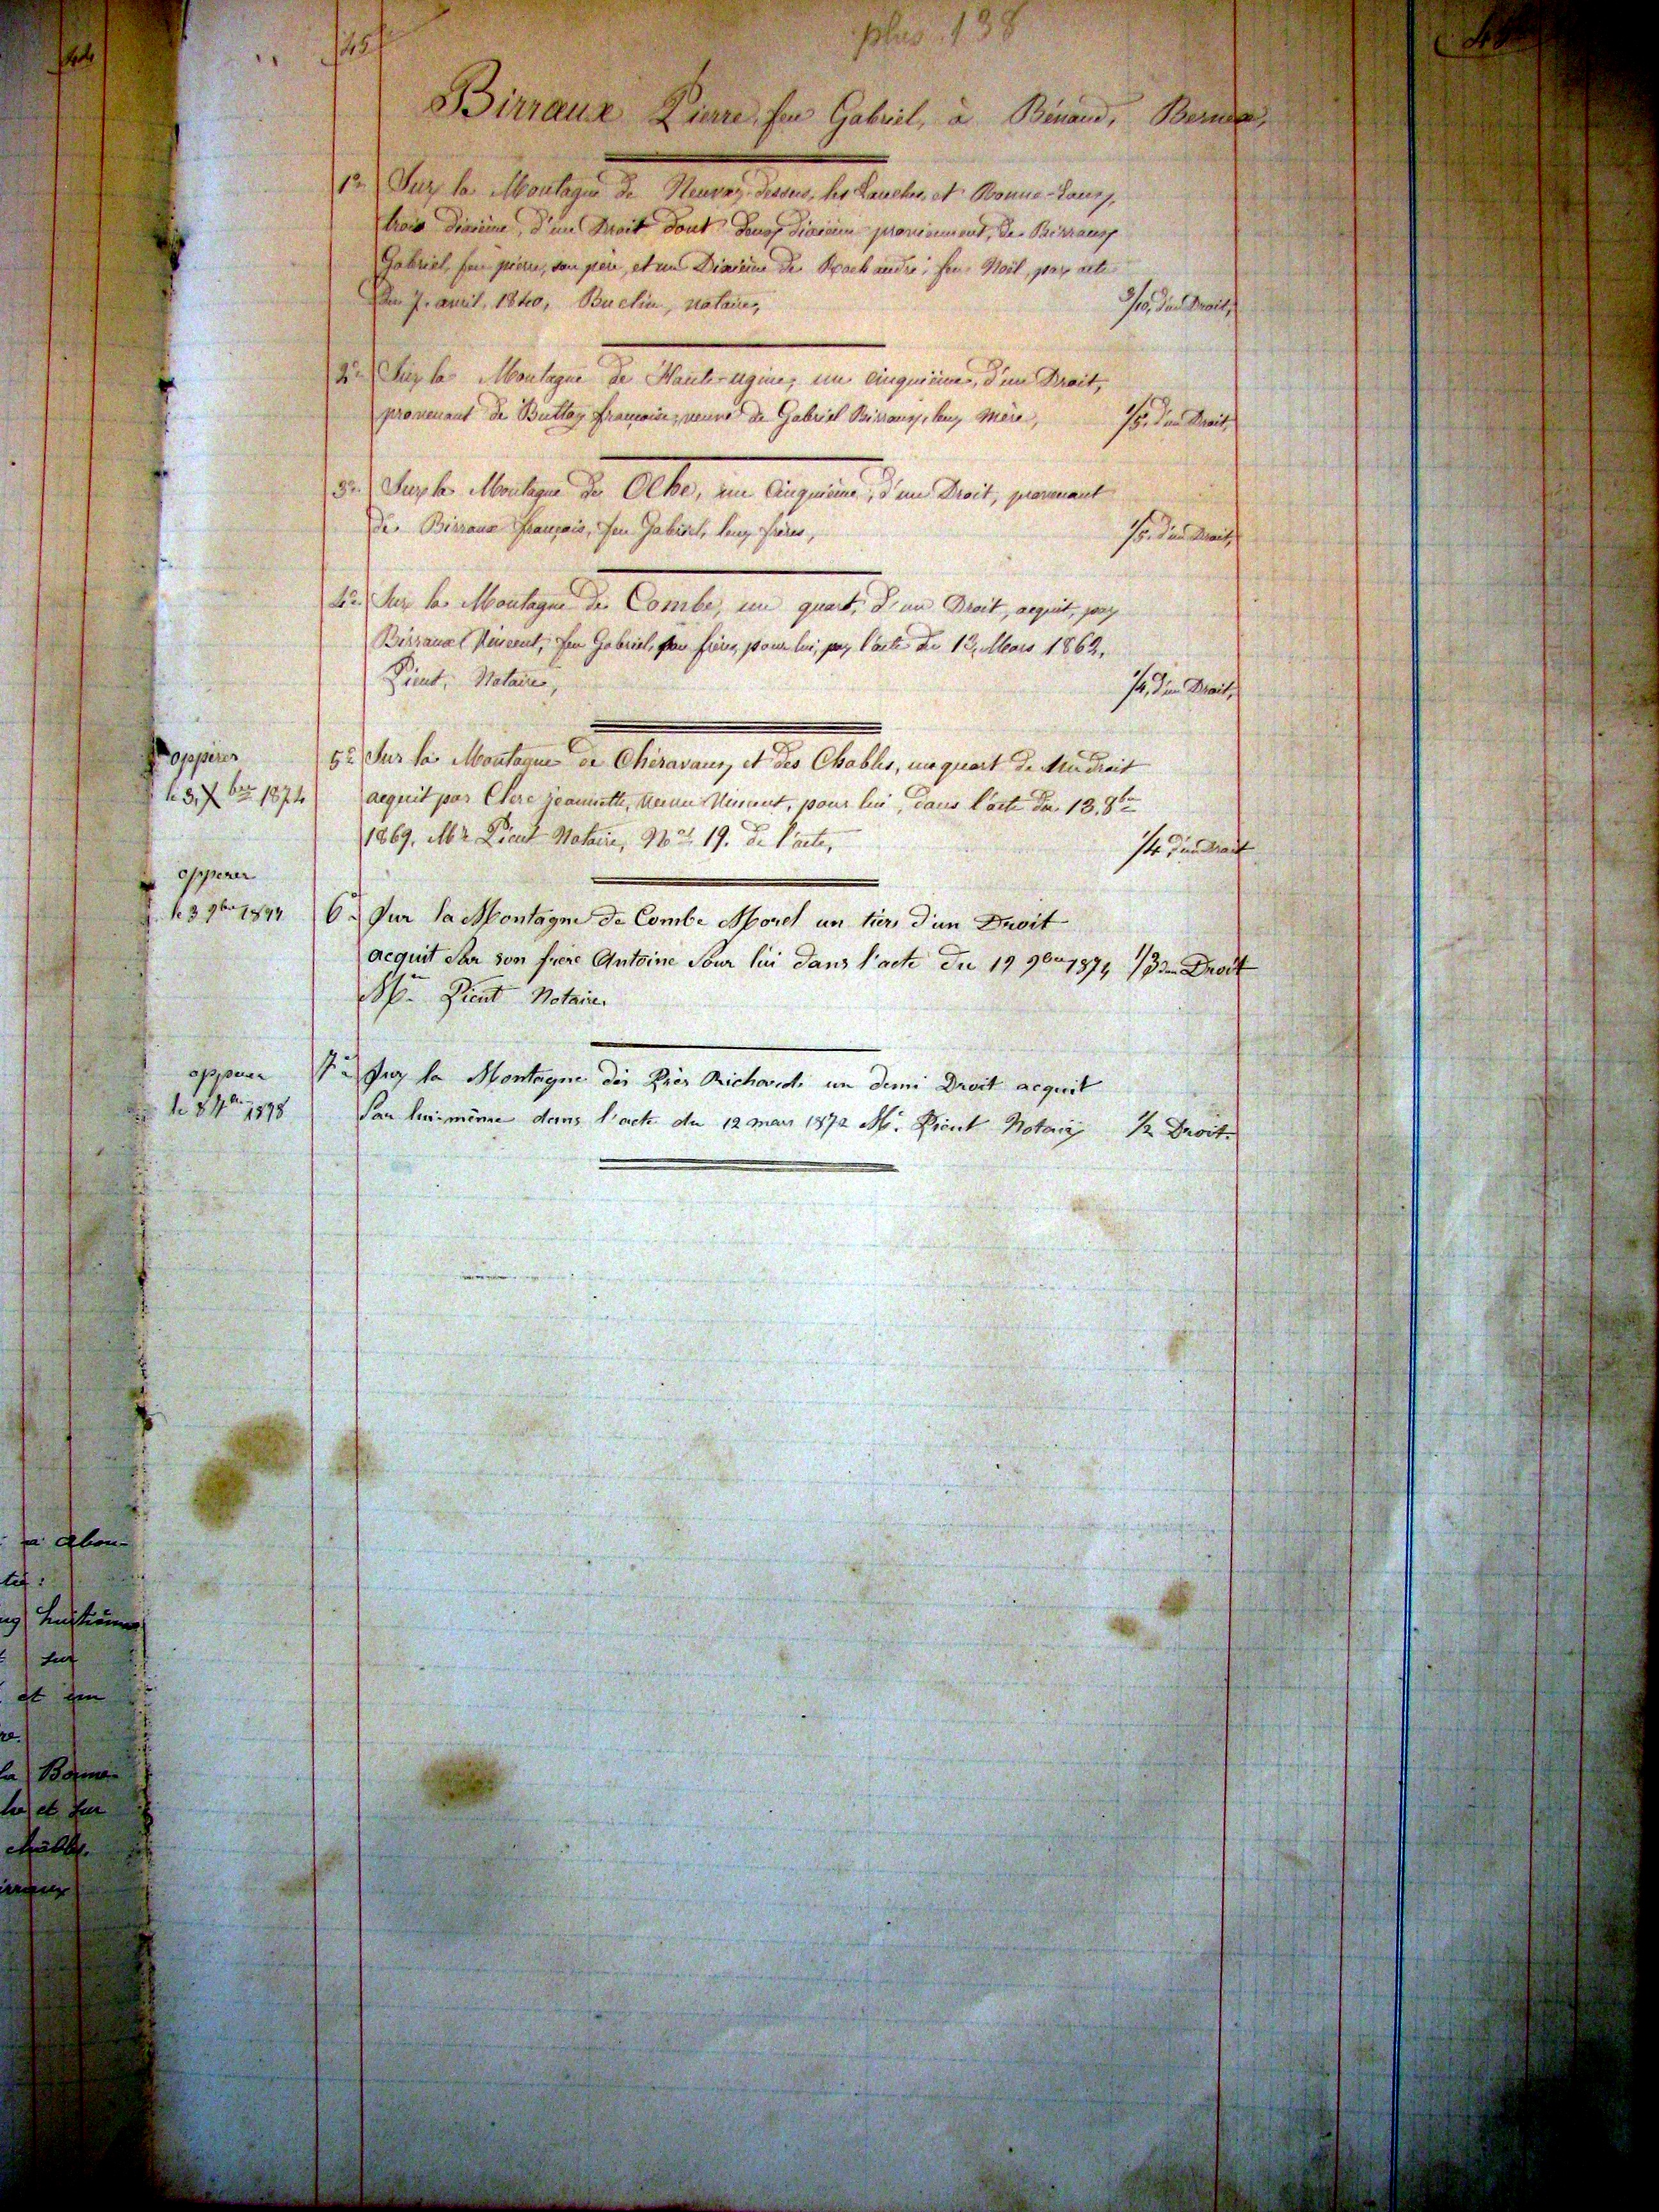 44
45
plus 138
Birraux Pierre, feu Gabriel, à Bénand, Bernex,
1º Sur la Montagne de Neuvaz-dessus, les Lanches, et Bonne-Eaux,
trois dixième, d'un Droit dont deux dixième proviennent, de Birraux
Gabriel, feu pierre, son père, et un Dixième de andré, feu Noël, par acte
du 7. avril, 1840, Buclin, notaire,
3/10, d'un Droit,
2º Sur la Montagne de Haute-ugine, un cinquième, d'un Droit,
provenant de Buttay françoise, veuve de Gabriel Birraux, leur Mère,
1/5. d'un Droit,
3º Sur la Montagne de Oche, un Cinquième, d'un Droit, provenant
de Birraux français, feu Gabriel, leur frères,
1/5. d'un Droit,
4º Sur la Montagne de Combe, un quart, d'un Droit, acquit, par
Birraux Vincent, feu Gabriel, son frère, pour lui, par l'acte du 13, Mars 1862,
Notaire,
1/4, d'un Droit,
oppérer
le 3, Xbre 1874
5º Sur la Montagne de Chéravaux, et des Chables, un quart de Un droit
acquit par Clerc jeannette, veuve Vincent, pour lui, dans l'acte du 13. 8bre
1869, Mre Notaire, Nº 19. de l'acte,
1/4 d'un droit
opperer
6º Sur la Montagne de Combe Morel un tiers d'un Droit
acquit Par son frère Antoine Pour lui dans l'acte du 19 9bre 1874 1/3 d'un Droit
Me Notaire.
opperer
7º Sur la Montagne des Près Richard un demi Droit acquit
Par lui-même dans l'acte du 12 mars 1872 Me Notaire 1/2 Droit.
à Abon-
huitième
sur
et un
la Bonne
et sur
chables.